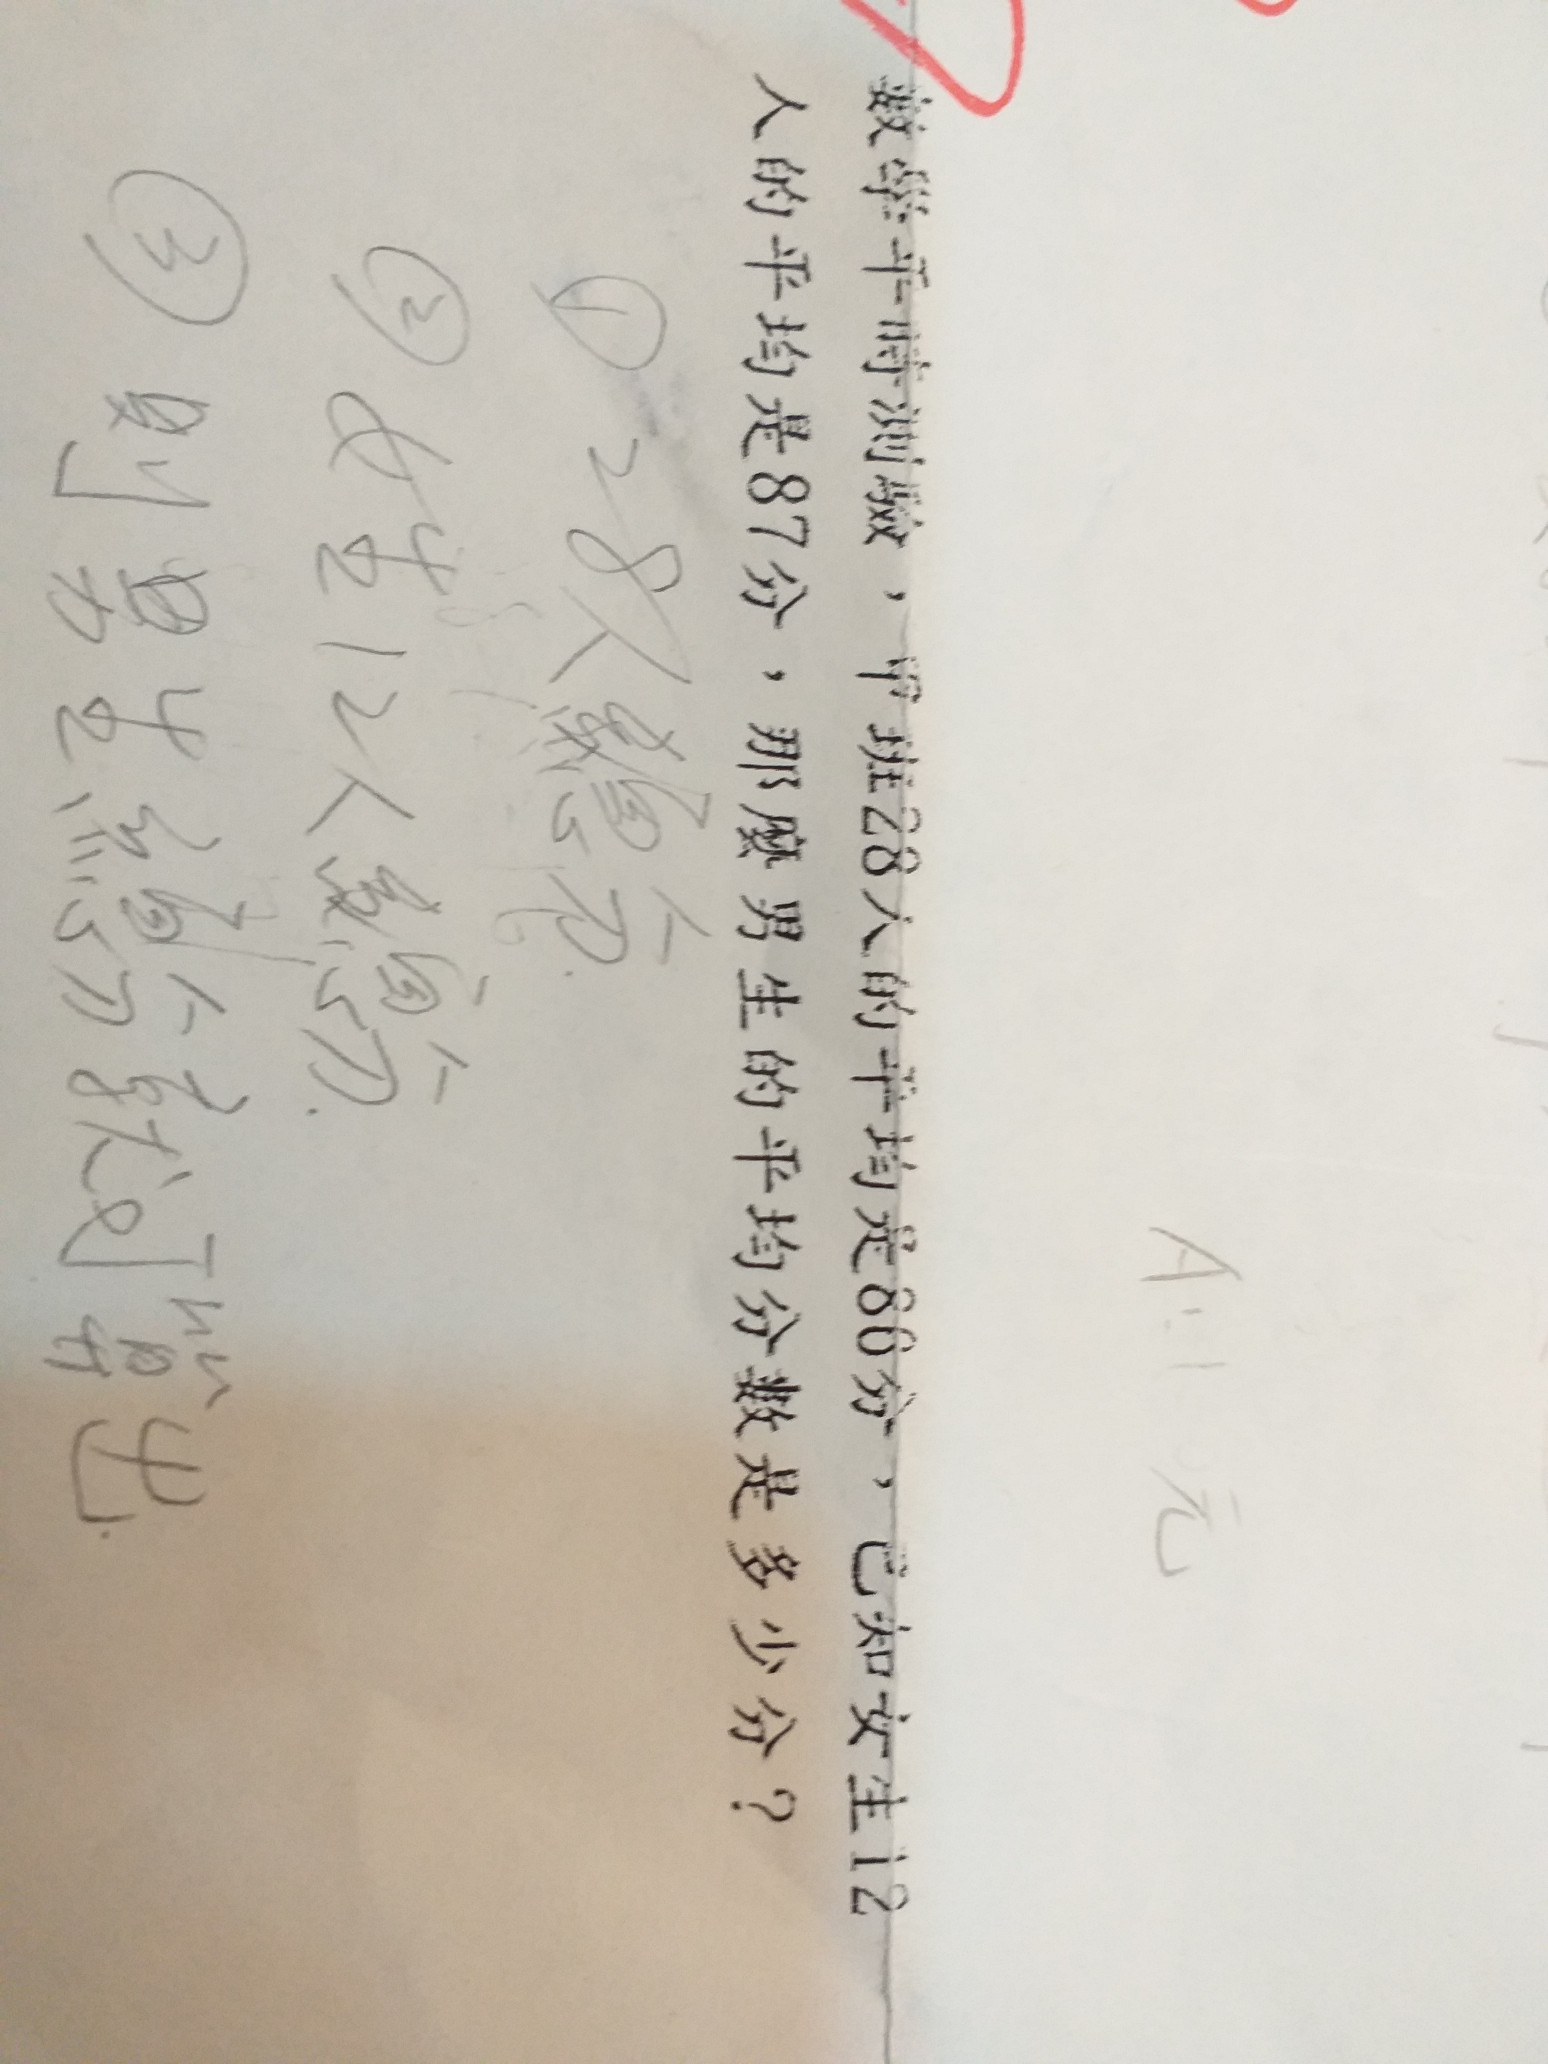 A:1元
數學平時測驗，甲班28人的平均是86分，已知女生12
人的平均是87分，那麼男生的平均分數是多少分？
① 28人總分.
② 女生12人總分.
③ 則男生總分就可